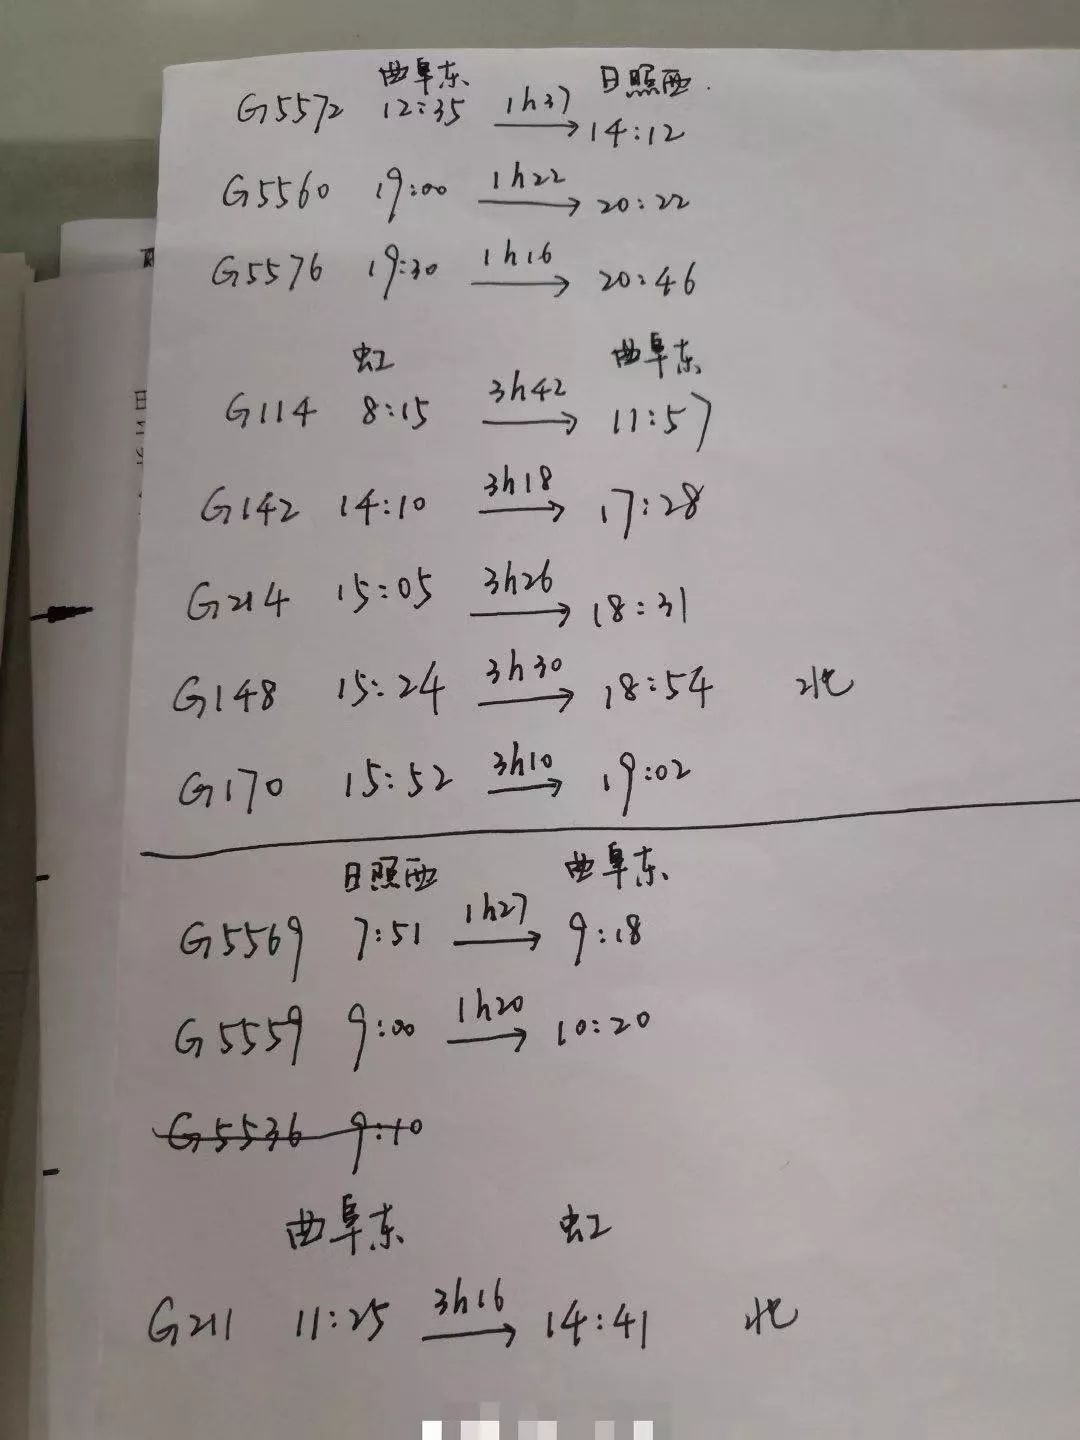 曲阜东 日照西
G5572 12:35 1h37 → 14:12
G5560 19:00 1h22 → 20:22
G5576 19:30 1h16 → 20:46
虹 曲阜东
G114 8:15 3h42 → 11:57
G142 14:10 3h18 → 17:28
G214 15:05 3h26 → 18:31
G148 15:24 3h30 → 18:54 北
G170 15:52 3h10 → 19:02
日照西 曲阜东
G5569 7:51 1h27 → 9:18
G5559 9:00 1h20 → 10:20
G5536 9:10
曲阜东 虹
G211 11:25 3h16 → 14:41 北